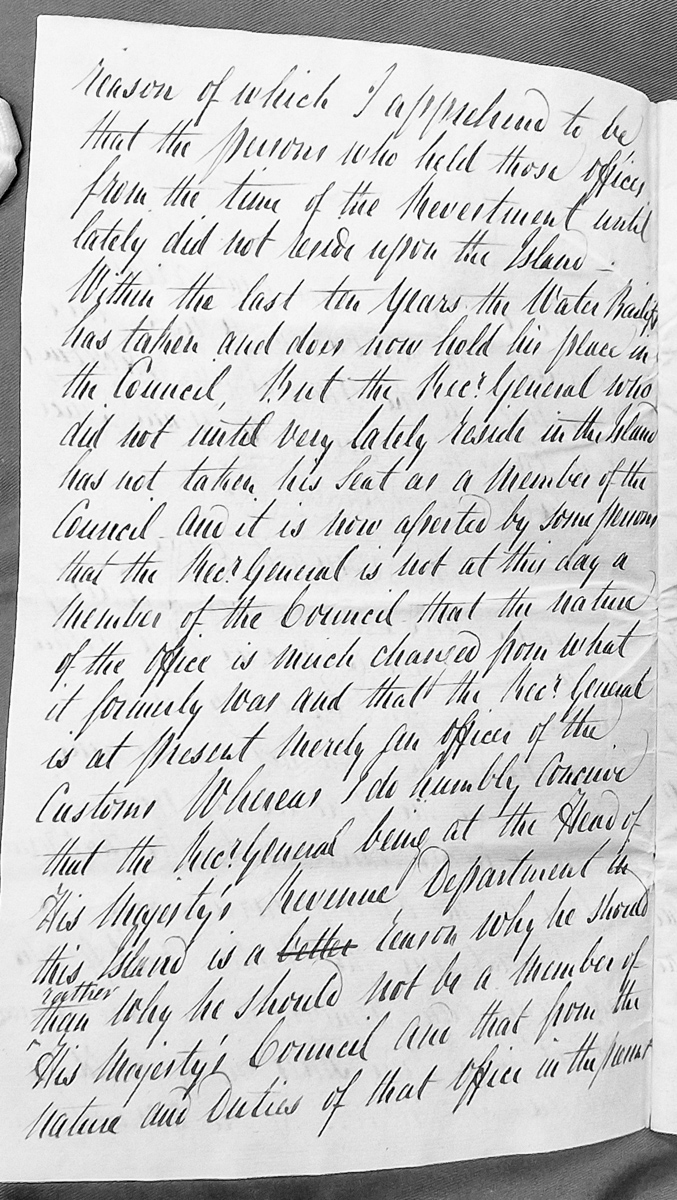 reason of which I apprehend to be
that the persons who held those offices
from the time of the Revestment until
lately did not reside upon the Island –
Within the last ten years the Water Bailiff
has taken and does now hold his place in
the Council, But the Recr. General who
did not until very lately reside in the Island
has not taken his Seat as a Member of the
Council and it is now asserted by some persons
that the Recr. General is not at this day a
Member of the Council that the nature
of the office is much changed from what
it formerly was and that the Recr. General
is at present merely an officer of the
Customs Whereas I do humbly Conceive
that the Recr. General being at the Head of
His Majesty's Revenue Department in
this Island is a better reason why he should
rather
than why he should not be a Member of
His Majesty's Council and that from the
nature and Duties of that office in the present